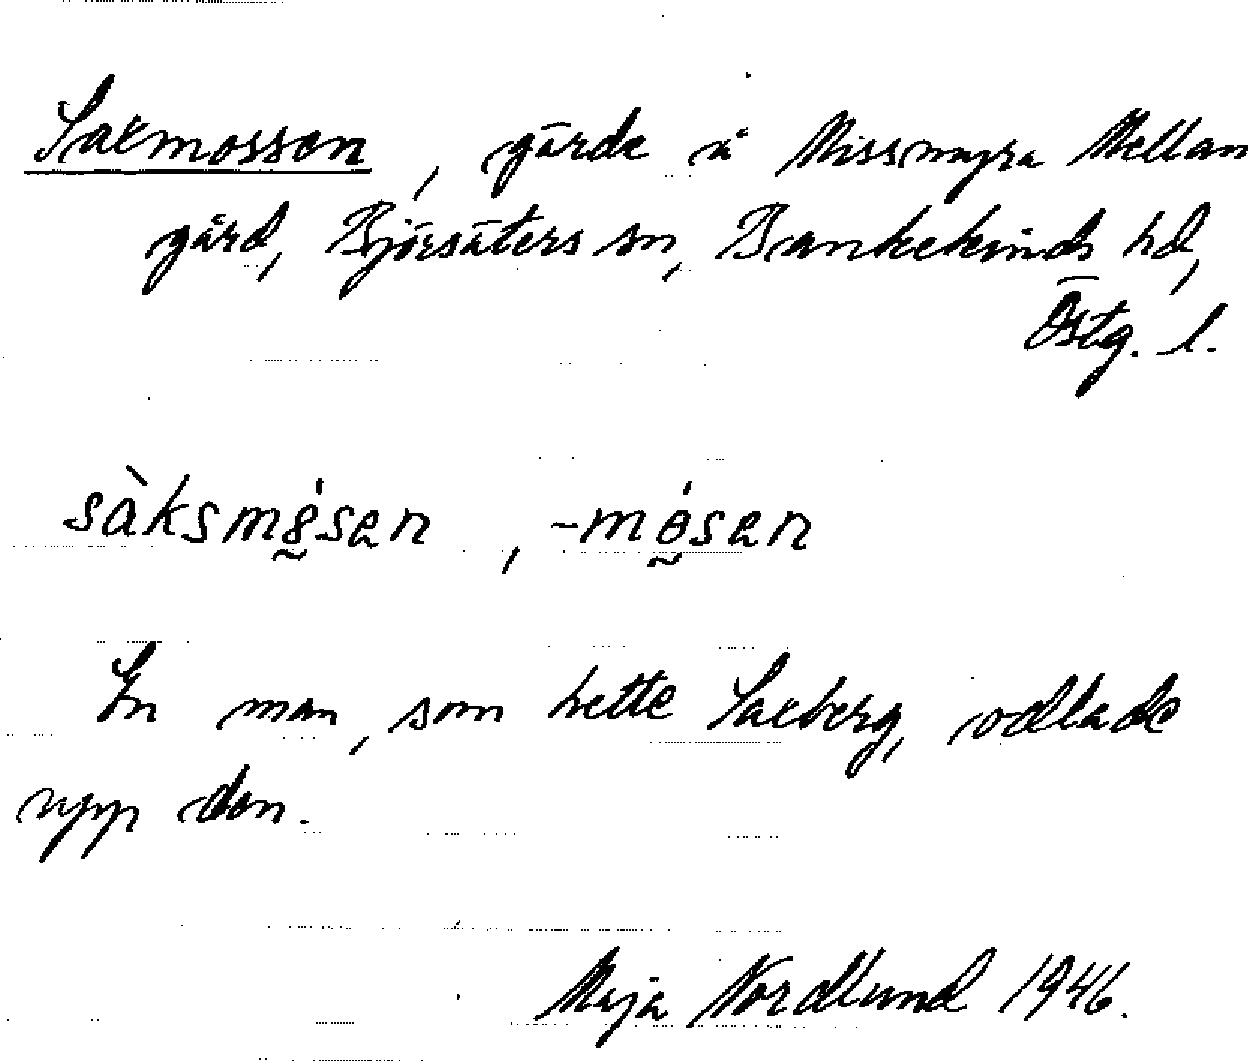 Saxmossen, gärde å Missmyra Mellan
gård, Björsäters sn, Bankekinds hd,
Östg. l.
sàksmósen, -mósen
En man, som hette Saxberg, odlade
upp den.
Maja Nordlund 1946.